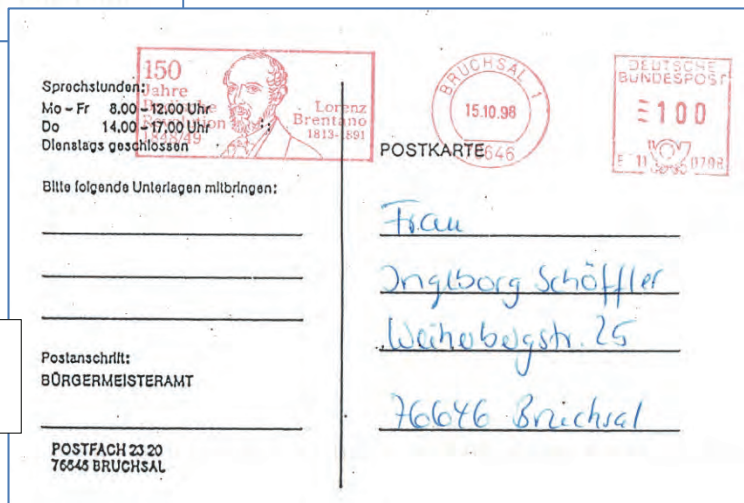 150
Jahre
Badische
Revolution
1848/49
Lorenz
Brentano
1813-1891
BRUCHSAL 1
15.10.98
646
DEUTSCHE
BUNDESPOST
100
Sprechstunden:
Mo – Fr 8.00 – 12.00 Uhr
Do 14.00 – 17.00 Uhr
Dienstags geschlossen
Bitte folgende Unterlagen mitbringen:
Postanschrift:
BÜRGERMEISTERAMT
POSTFACH 23 20
76646 BRUCHSAL
POSTKARTE
Frau
Ingeborg Schöffler
Weiherbergstr. 25
76646 Bruchsal